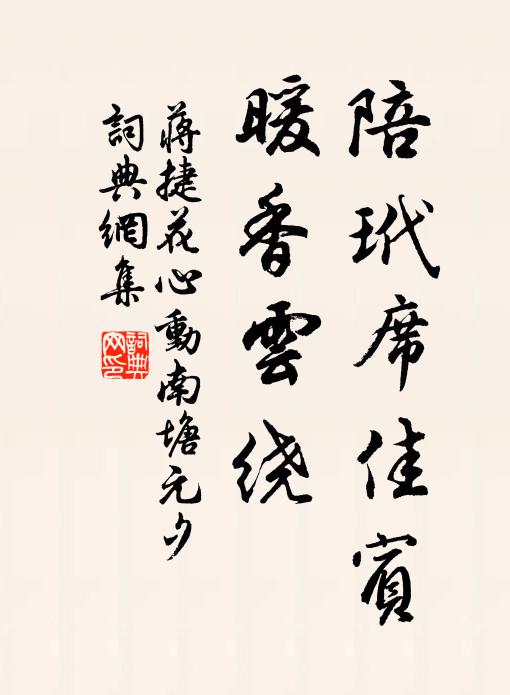 陪玳席佳賓
暖香雲绕
蔣捷花心動南塘元夕
詞典網集
詞典
网印